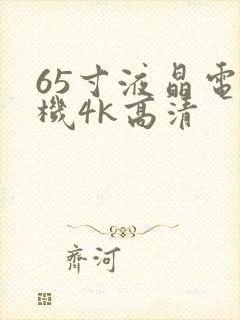 65寸液晶電
機4K高清
齊河